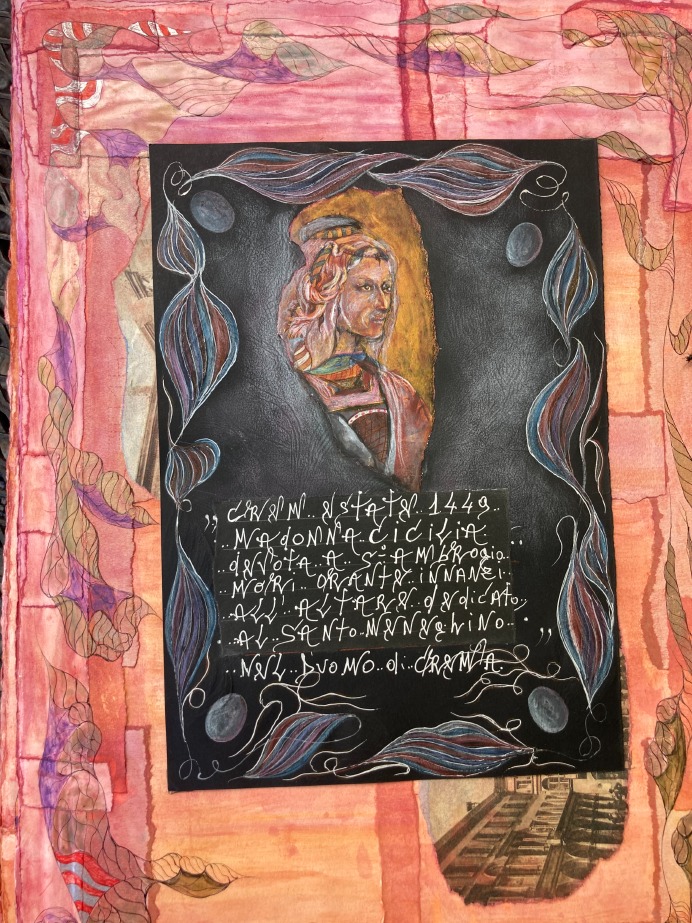 „ CREM.. ESTATE.. 1449..
..MADONNA CICILIA
..dEVOTA.. A.. S: AMBROGIO..
..MORI.. ORANTE INNANZI..
..ALL' ALTARE dEdICATO,
..AL SANTO MENEGHINO.. "
..NEL.. DUOMO.. di.. CREMA